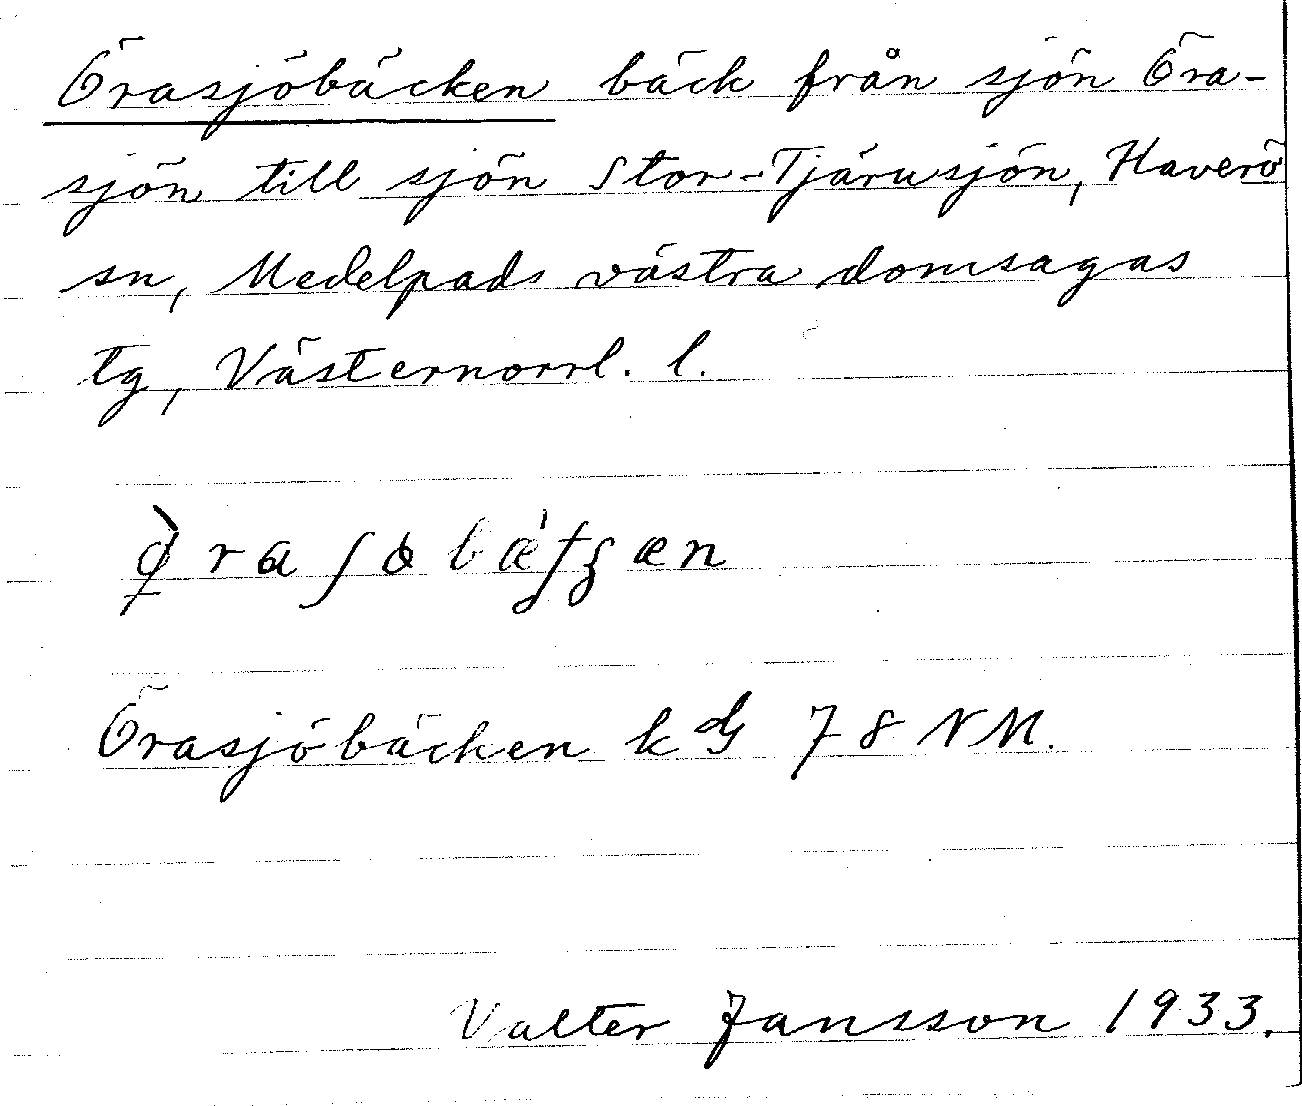 Örasjöbäcken bäck från sjön Öra-
sjön till sjön Stor-Tjärusjön, Haverö
sn, Medelpads västra domsagas
tg, Västernorrl. l.
Örasjöbäcken kG 78 NM.
Valter Jansson 1933.